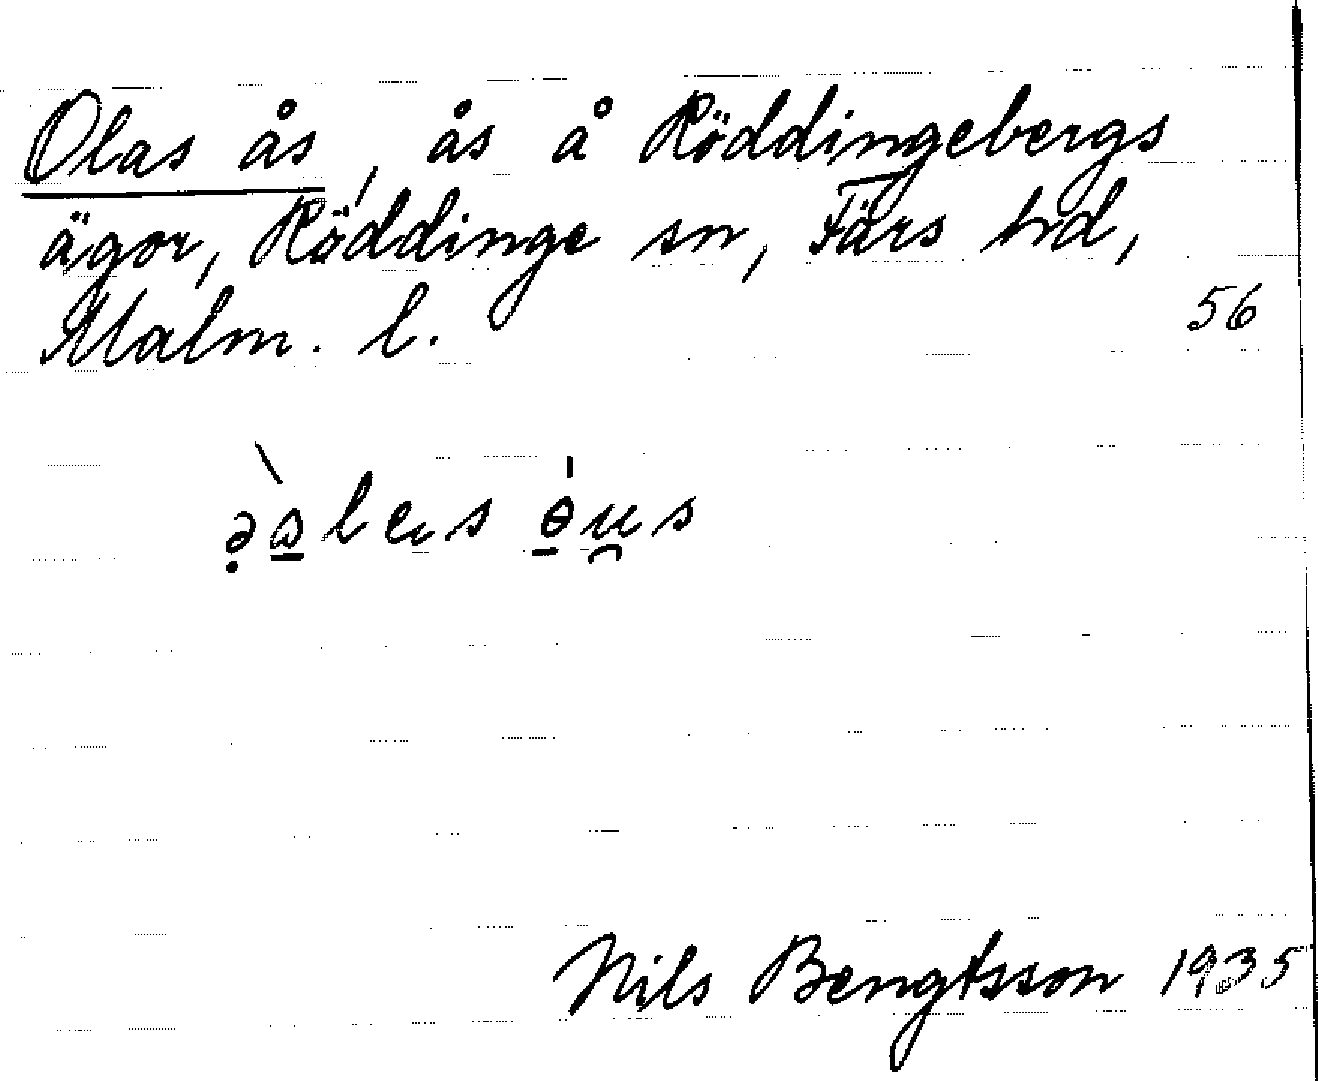 Olas ås, ås å Röddingebergs
ägor, Röddinge sn, Färs hd,
Malm. l.
56
Nils Bengtsson 1935